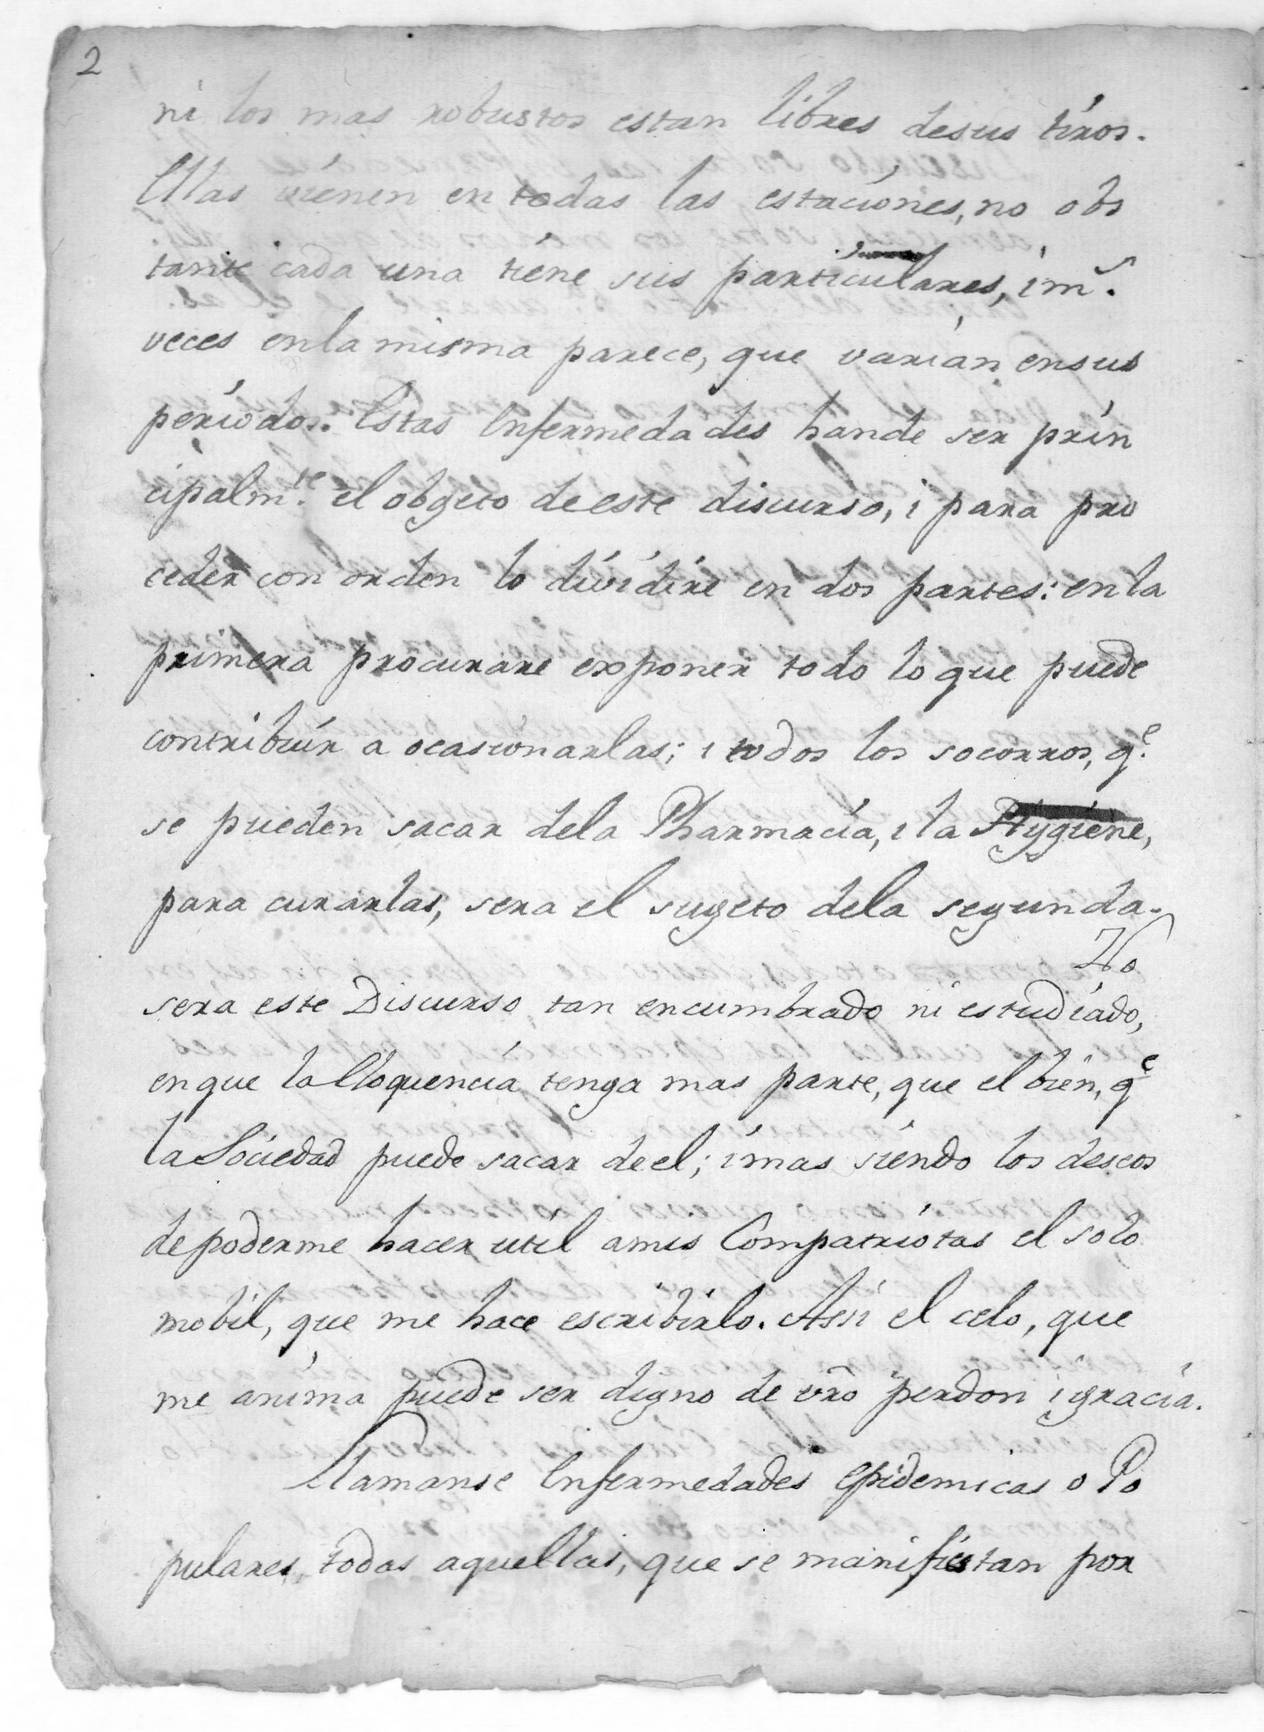 2
ni los mas robustos estan libres desus tiros.
Ellas vienen en todas las estaciones, no obs
tante cada una tiene sus particulares, i m.s
veces enla misma parece, que varían ensus
periodos. Estas Enfermedades hande ser prin
cipalm.te el obgeto deeste discurso, i para pro
ceder con orden lo dividiré en dos partes: enla
primera procurare exponer todo lo que puede
contribuír a ocasionarlas; i todos los socorros, q.e
se pueden sacar dela Pharmacía, i la Hygiène,
para curarlas, sera el sugeto dela segunda.
No
sera este Discurso tan encumbrado ni estudiado,
enque la Eloquencia tenga mas parte, que el bien, q.e
la Sociedad puede sacar deel; i mas siendo los deseos
depoderme hacer util amis Compatriotas el solo
mobil, que me hace escribirlo. Assi el celo, que
me aníma puede ser digno de vr̃o perdon i gracia.
Llamanse Enfermedades Epidemicas o Po
pulares, todas aquellas, que se manifiestan por